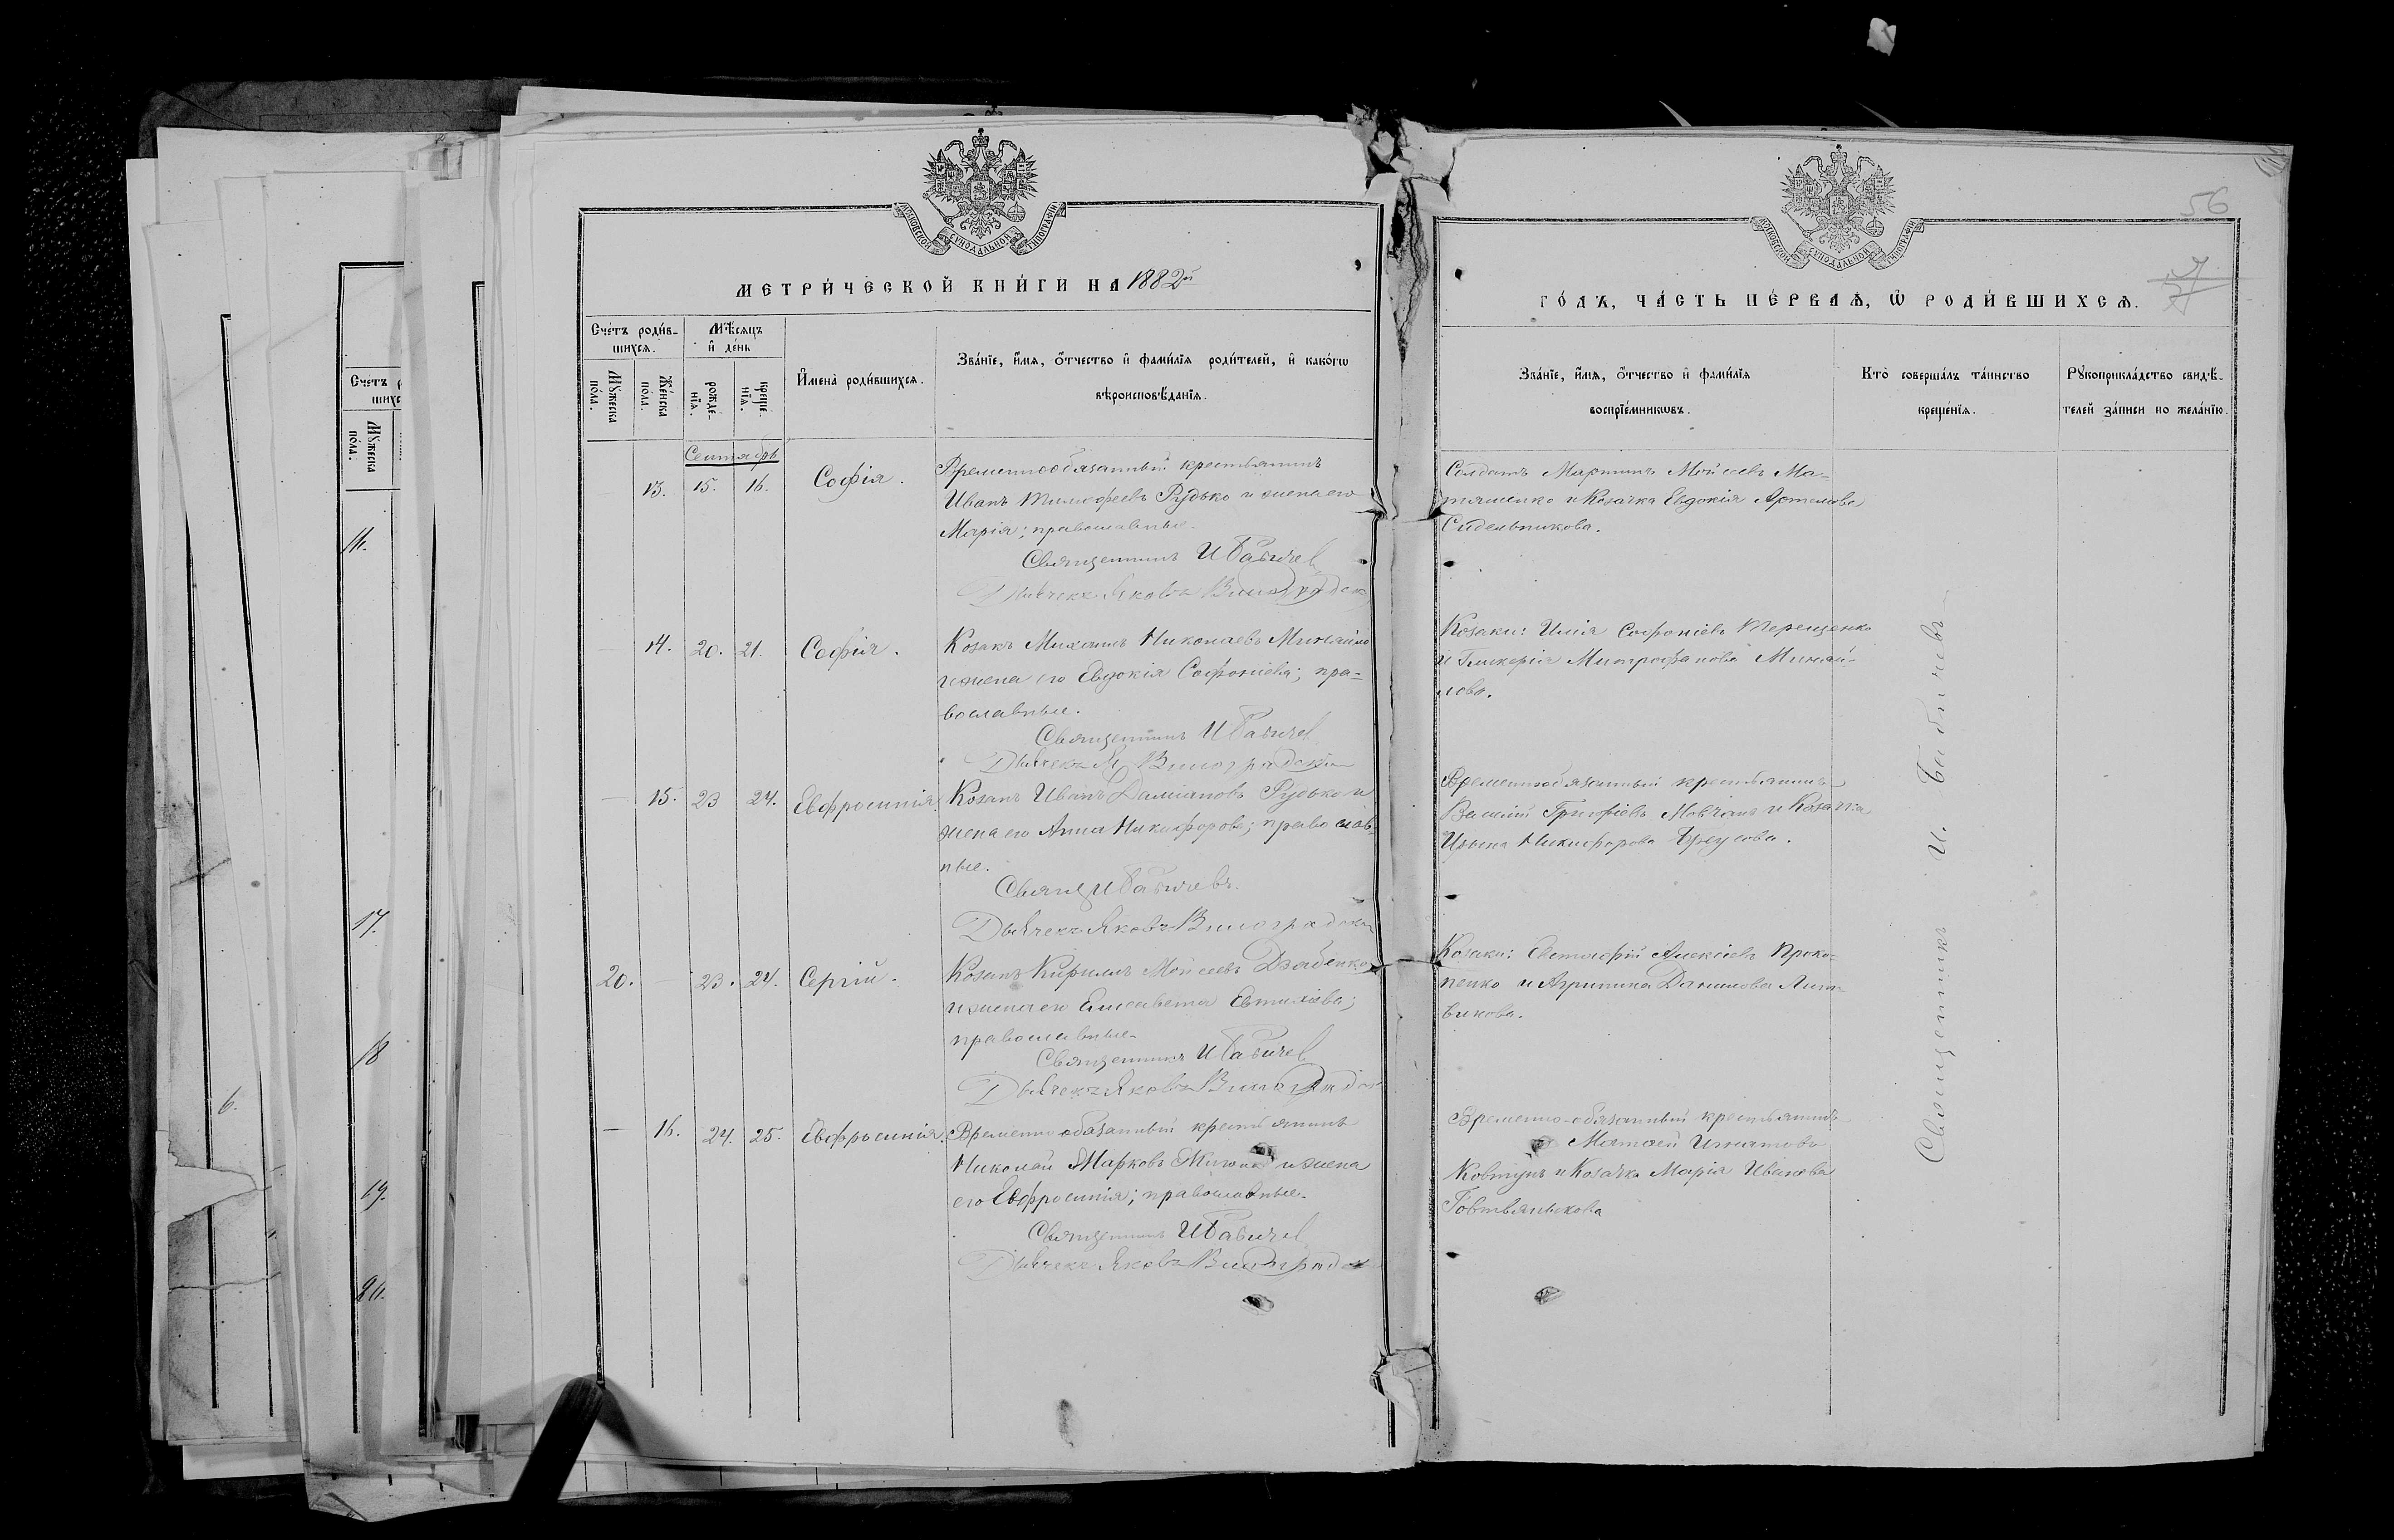 МОСКОВСКОЙ СУНОДАЛЬНОЙ ТИПОГРАФІИ
МЕТРИ́ЧЕСКОЙ КНИ́ГИ НА 1882й
Сче́тъ роди́в-
шихсѧ.
Мѣ́сѧцъ
и҆ де́нь
Мꙋ́жеска
по́ла.
Же́нска
пола.
рожде́-
нїѧ.
креще́-
нїѧ.
И҆мена̀ роди́вшихсѧ.
Зва́нїе, и҆́мѧ, ѻ҆́тчество и҆ фами́лїѧ роди́телей, и҆ како́гѡ
вѣроисповѣ́данїѧ.
Сентябрь
13. 15. 16. Софія.
Временнообязанный крестьянинъ
Иванъ Тимофеевъ Рудько и жена его
Марія; православные.
Священникъ И Бабичев
Дьячекъ Яковъ Виноградск
14. 20. 21. Софія.
Козакъ Михаилъ Николаевъ Михайло
и жена его Евдокія Софоніева; пра=
вославные.
Священникъ И Бабичев
Дьячекъ Я Виноградскій
15. 23 24. Евфросинія
Козакъ Иванъ Даміановъ Рудько и
жена его Анна Никифорова; православ-
ные.
Свящ И Бабичевъ.
Дьячекъ Яковъ Виноградск
20. 23. 24. Сергій.
Козакъ Кирилъ Мойсеевъ Дзюбенко
и жена его Елисавета Евтихіева;
православные.
Священникъ И Бабичев
Дьячекъ Яковъ Виноградск
16. 24. 25. Евфросинія.
Временно обязанный крестьянинъ
Николай Марковъ и жена
его Евфросинія; православные.
Священникъ И Бабичев
Дьячекъ Яковъ Виноградск
МОСКОВСКОЙ СУНОДАЛЬНОЙ ТИПОГРАФІИ
56
ГО́ДЪ, ЧА́СТЬ ПЕ́РВАѦ, Ѡ҆ РОДИ́ВШИХСѦ.
Зва́нїе, и҆́мѧ, ѻ҆́тчество и҆ фами́лїѧ
воспрїе́мникѡвъ.
Кто̀ соверша́лъ та́инство
креще́нїѧ.
Рꙋкоприкла́дство свидѣ́-
телей за́писи по жела́нїю.
Солдатъ Мартинъ Мойсеевъ Ма-
тяшенко и Козачка Евдокія Артемова
Сидельникова.
Козаки: Илія Софоніевъ Терещенко
и Гликерія Митрофанова Михай-
лова.
Временнообязанный крестьянинъ
Василій Григоріевъ Мовчанъ и Козачка
Ирина Никифорова
Козаки: Алексіевъ Проко-
пенко и Агрипина Данилова Лит-
винова.
Временно-обязанный крестьянинъ
Матвей Игнатовъ
Ковтунъ и Козачка Марія Иванова
Священникъ И. Бабичевъ
11.
17.
18
19.
20.
6.